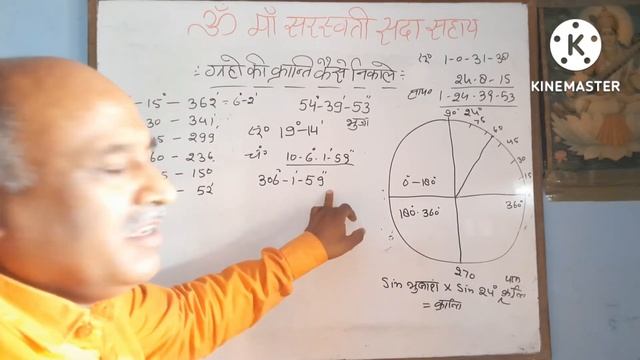 ॐ माँ सरस्वती सदा सहाय
: ग्रहो की क्रान्ति कैसे निकाले :
15° - 362' = 6°-2'
30 - 341'
15 - 299'
60 - 236
5 - 150
- 52'
54°-39'-53"
भुजा
19°-14'
चं० 10-6°-1'-59"
306°-1'-59"
1-0-31-38
24-8-15
1-24-39-53
90° 24°
75
60
45
30
15
0°-180°
180°-360°
360°
270
Sin भुजांश × Sin 24° परम क्रान्ति
= क्रान्ति
KINEMASTER